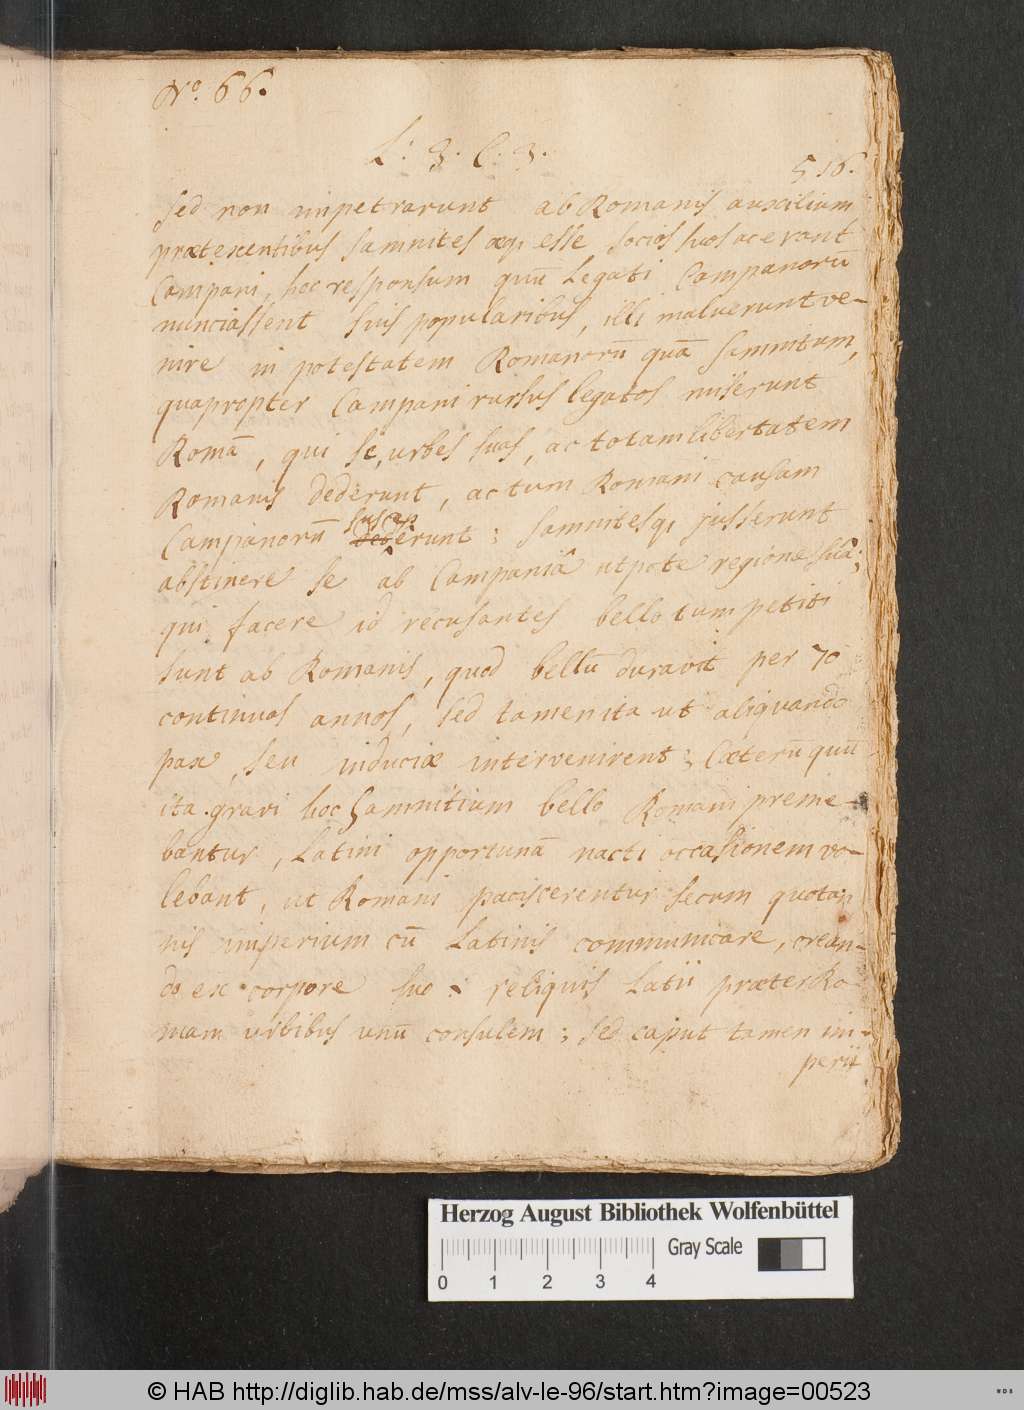 No. 66.
L: 3. C: 3.
516.
sed non impetrarunt ab Romanis auxilium
prætexentibus samnites æq; esse socios suos ac erant
Campani, hoc responsum quū Legati Campanorū
nunciassent suis popularibus, illi maluerunt ve-
nire in potestatem Romanorū quā samnitum,
quapropter Campani rursus legatos miserunt
Romā, qui se, urbes suas, ac totam libertatem
Romanis dederunt, ac tum Romani causam
Campanorū suscep
erunt; samnitesq; jusserunt
abstinere se ab Campaniâ utpote regione suâ;
qui facere id recusantes bello tum petiti
sunt ab Romanis, quod bellū duravit per 70
continuos annos, sed tamen ita ut aliquando
pax, seu induciæ intervenirent; Cæterū quū
ita gravi hoc Samnitium bello Romani preme-
bantur, Latini opportunā nacti occasionem vo-
lebant, ut Romani paciscerentur secum quotan
nis imperium cū Latinis communicare, crean-
do ex corpore suo reliquis Latii præter Ro-
mam urbibus unū consulem; sed caput tamen im-
perii
Herzog August Bibliothek Wolfenbüttel
0 1 2 3 4
Gray Scale
© HAB http://diglib.hab.de/mss/alv-le-96/start.htm?image=00523